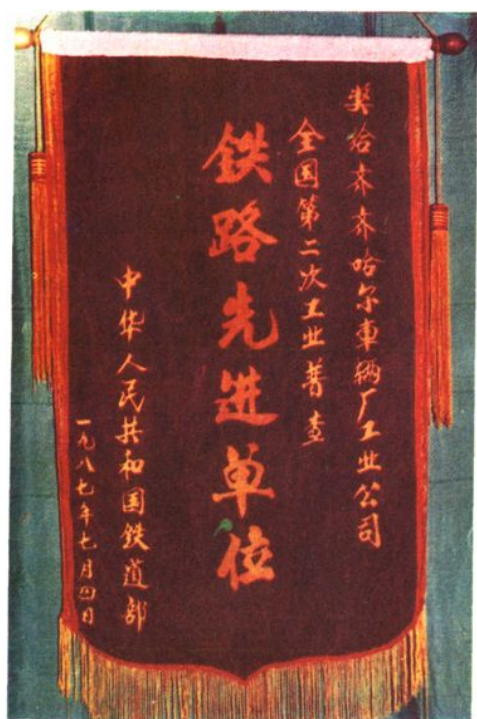 奖给齐齐哈尔車辆厂工业公司
全国第二次工业普查
铁路先进单位
中华人民共和国铁道部
一九八七年七月四日